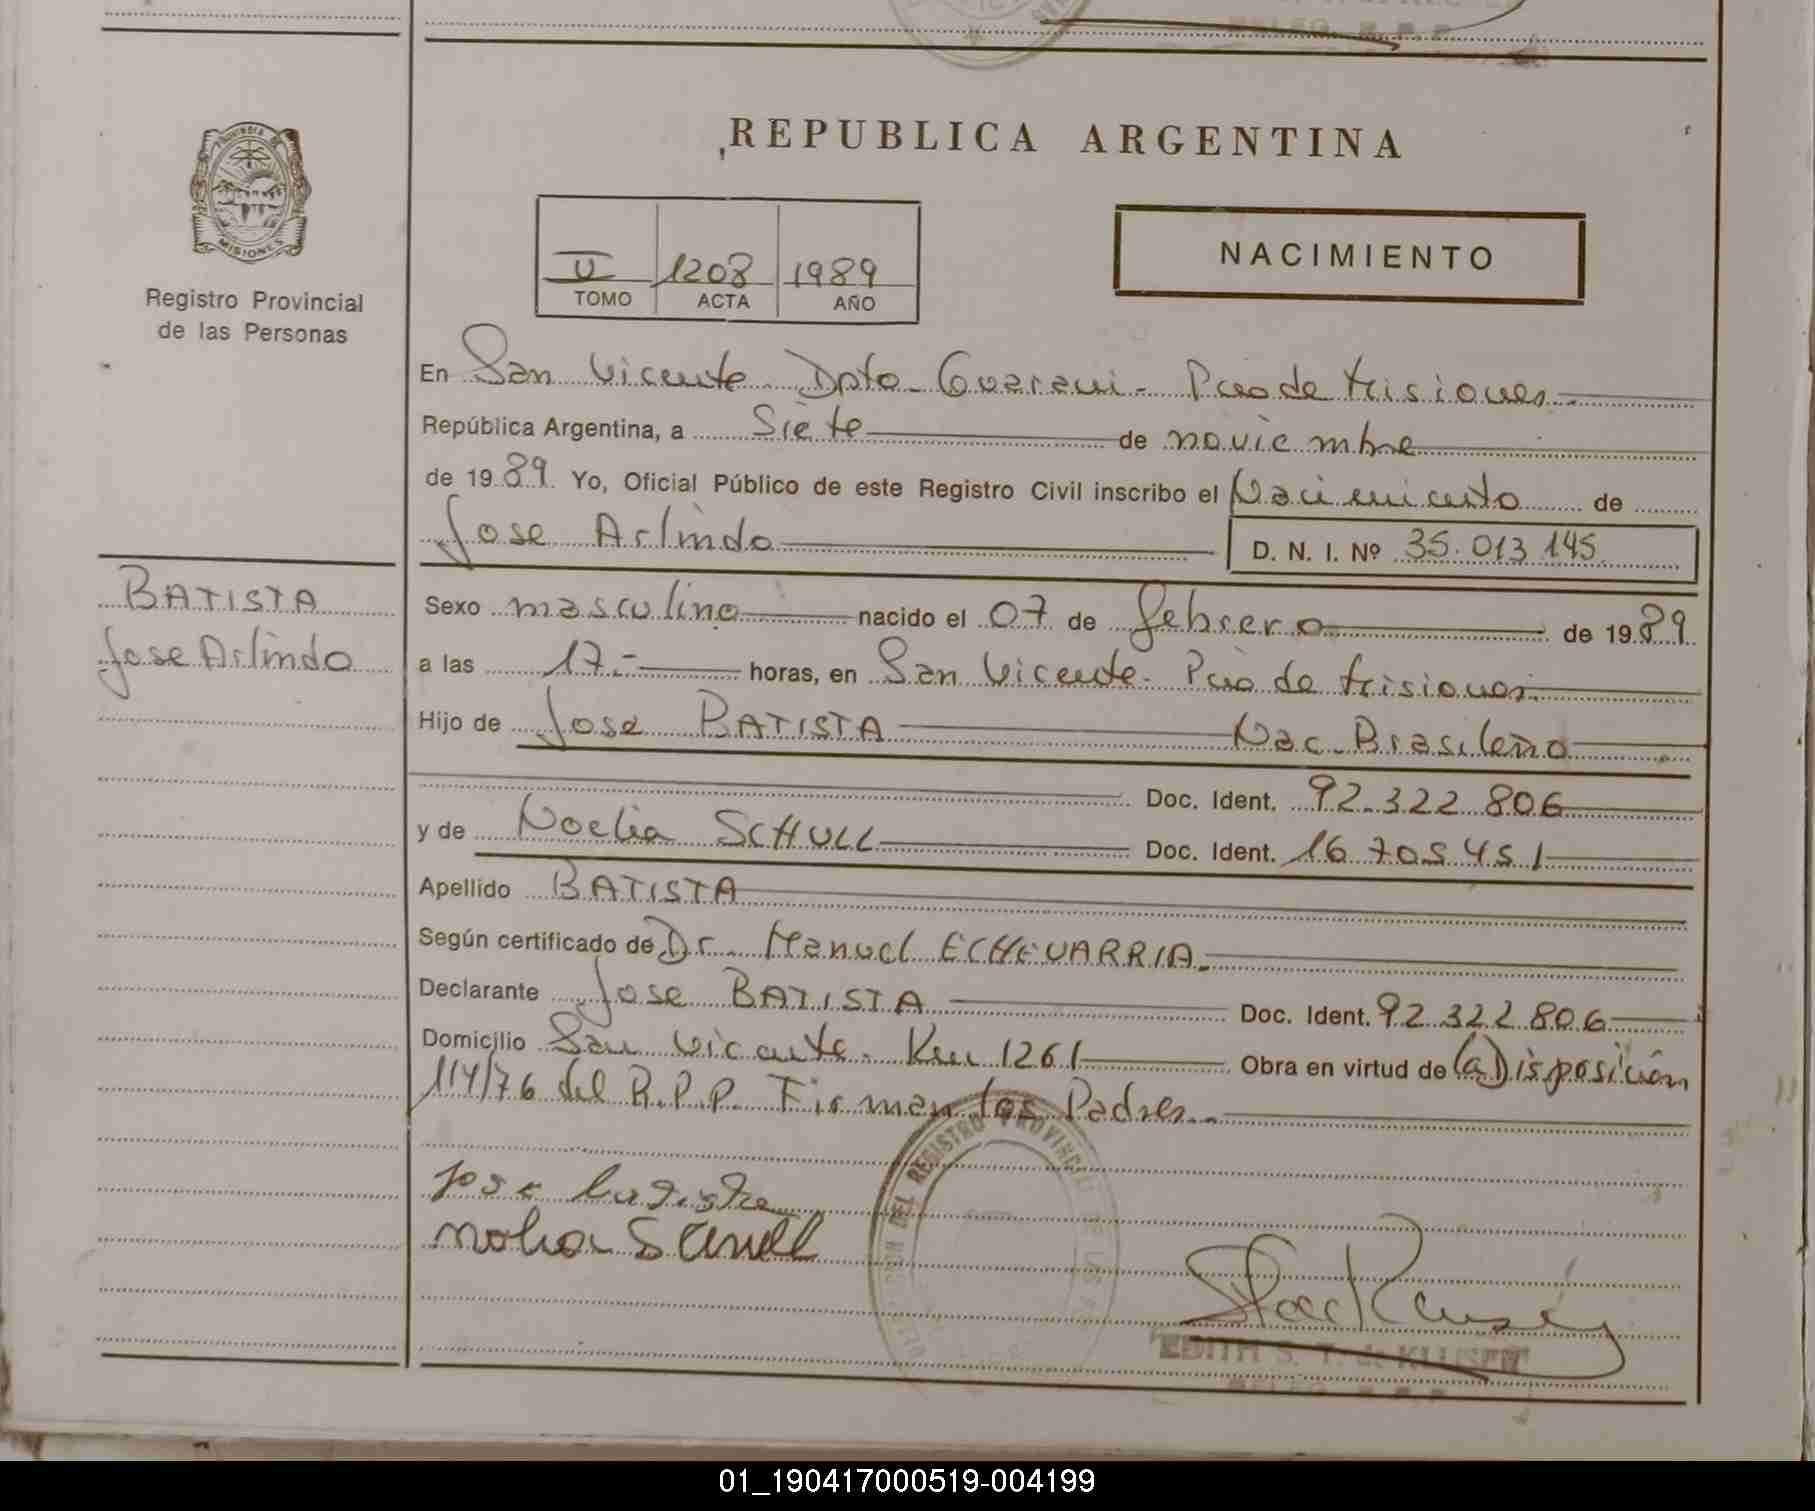 REPUBLICA ARGENTINA
PROVINCIA DE
MISIONES
Registro Provincial
de las Personas
V 1208 1989
TOMO ACTA AÑO
NACIMIENTO
En San Vicente Dpto. Guarani - Pcia de Misiones
República Argentina, a Siete de noviembre
de 1989. Yo, Oficial Público de este Registro Civil inscribo el Nacimiento de
Jose Arlindo D. N. I. Nº 35.013.145
BATISTA
Jose Arlindo
Sexo masculino nacido el 07 de febrero de 1989
a las 17.- horas, en San Vicente - Pcia de Misiones
Hijo de Jose BATISTA Nac. Brasileño
Doc. Ident. 92.322.806
y de Noelia SCHULL Doc. Ident. 16.705.451
Apellido BATISTA
Según certificado de Dr. Manuel ECHEVARRIA
Declarante Jose BATISTA Doc. Ident. 92.322.806
Domicilio San Vicente - Km 1261 Obra en virtud de (a) Disposición
114/76 del R.P.P. Firman los Padres
DEL REGISTRO PROVINCIAL DE LAS
jose batista
EDITH S. T. de
01_190417000519-004199